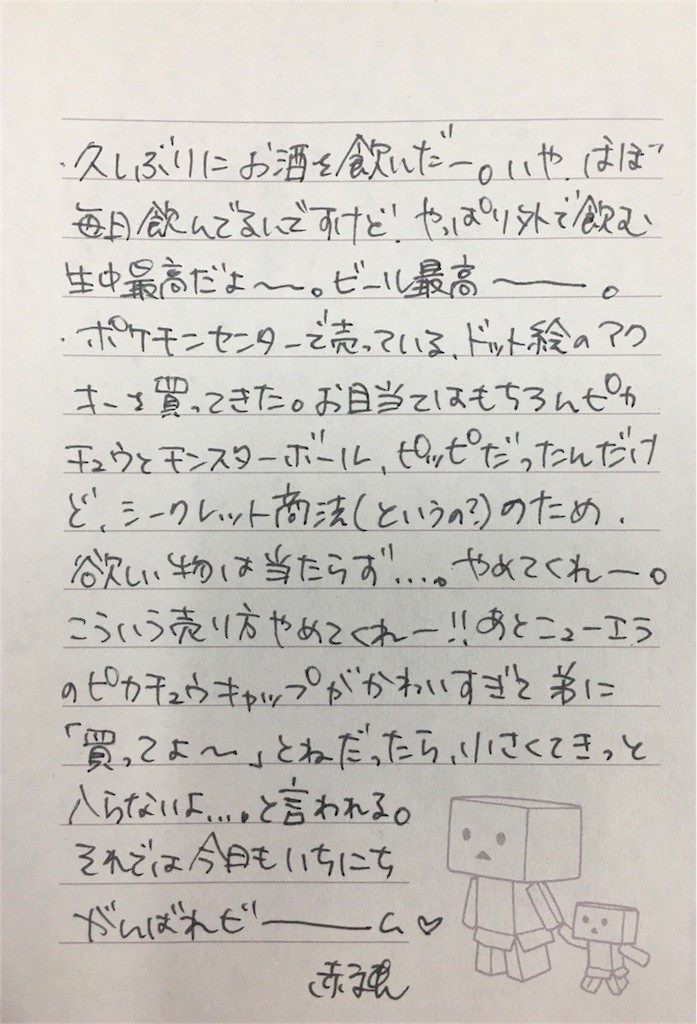 ・久しぶりにお酒を飲んだー。いや、ほぼ
毎日飲んでるんですけど、やっぱり外で飲む
生中最高だよ〜。ビール最高――。
・ポケモンセンターで売っている、ドット絵のアク
キーを買ってきた。お目当てはもちろんピカ
チュウとモンスターボール、ピッピだったんだけ
ど、シークレット商法(というの?)のため、
欲しい物は当たらず…。やめてくれー。
こういう売り方やめてくれー!!あとニューエラ
のピカチュウキャップがかわいすぎて弟に
「買ってよ〜」とねだったら、小さくてきっと
入らないよ…。と言われる。
それでは今日もいちにち
がんばれビ――ム♡